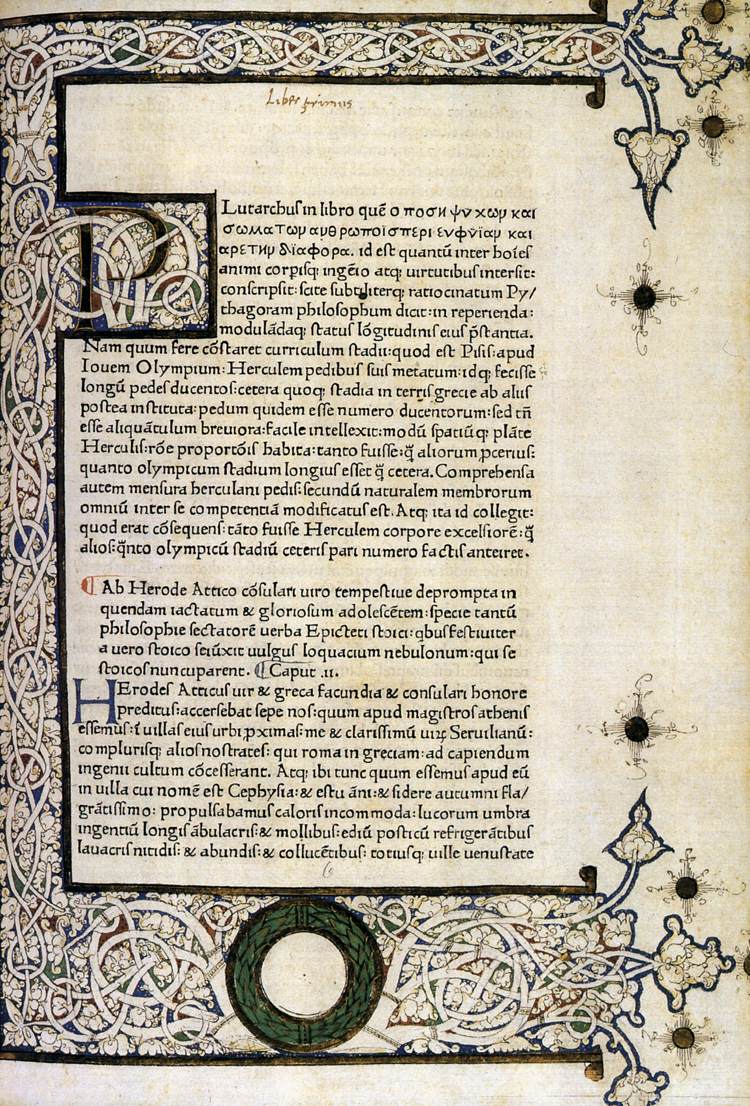 Liber primus
PLutarchuſ in libro quē οποσηψνχωμ και
σωματωμ αμθρωποισπερι ευφυϊαμ και
αρετημ διαφορα. id eſt quantū inter hoīeſ
animi corpiſq; ingēio atq; uirtutibuſ interſit:
conſcripſit: ſcite ſubtiliterq; ratiocinatum Py/
thagoram philoſophum dicit: in reperienda:
modulādaq; ſtatuſ lōgitudiniſ eiuſ p̄ſtantia.
Nam quum fere cōſtaret curriculum ſtadii: quod eſt Piſiſ: apud
Iouem Olympium: Herculem pedibuſ ſuiſ metatum: idq; feciſſe
longū pedeſ ducentoſ: cetera quoq; ſtadia in terriſ grecie ab aliiſ
poſtea inſtituta: pedum quidem eſſe numero ducentorum: ſed tn̄
eſſe aliquātulum breuiora: facile intellexit: modū ſpatiūq; plāte
Herculiſ: rōe proportōiſ habita: tanto fuiſſe: q̄ aliorum ꝓceriuſ:
quanto olympicum ſtadium longiuſ eſſet q̄ cetera. Comprehenſa
autem menſura herculani pediſ: ſecundū naturalem membrorum
omniū inter ſe competentiā modificatuſ eſt. Atq; ita id collegit:
quod erat cōſequenſ: tāto fuiſſe Herculem corpore excelſiorē: q̄
alioſ: q̄nto olympicū ſtadiū ceteriſ pari numero factiſ anteiret.
¶ Ab Herode Attico cōſulari uiro tempeſtiue deprompta in
quendam iactatum & glorioſum adoleſcētem: ſpecie tantū
philoſophie ſectatorē uerba Epicteti ſtoici: qbuſ feſtiuiter
a uero ſtoico ſeiūxit uulguſ loquacium nebulonum: qui ſe
ſtoicoſ nuncuparent. ¶ Caput .ii.
HErodeſ Atticuſ uir & greca facundia & conſulari honore
predituſ: accerſebat ſepe noſ: quum apud magiſtroſ atheniſ
eſſemuſ: ī uillaſ eiuſ urbi ꝓximaſ: me & clariſſimū uiꝝ Seruilianū:
compluriſq; alioſ noſtrateſ: qui roma in greciam: ad capiendum
ingenii cultum cōceſſerant. Atq; ibi tunc quum eſſemuſ apud eū
in uilla cui nomē eſt Cephyſia: & eſtu āni: & ſidere autumni fla/
grātiſſimo: propulſabamuſ caloriſ incommoda: lucorum umbra
ingentiū longiſ ābulacriſ: & mollibuſ: ediū poſticū refrigerātibuſ
lauacriſ nitidiſ: & abundiſ: & collucētibuſ: totiuſq; uille uenuſtate